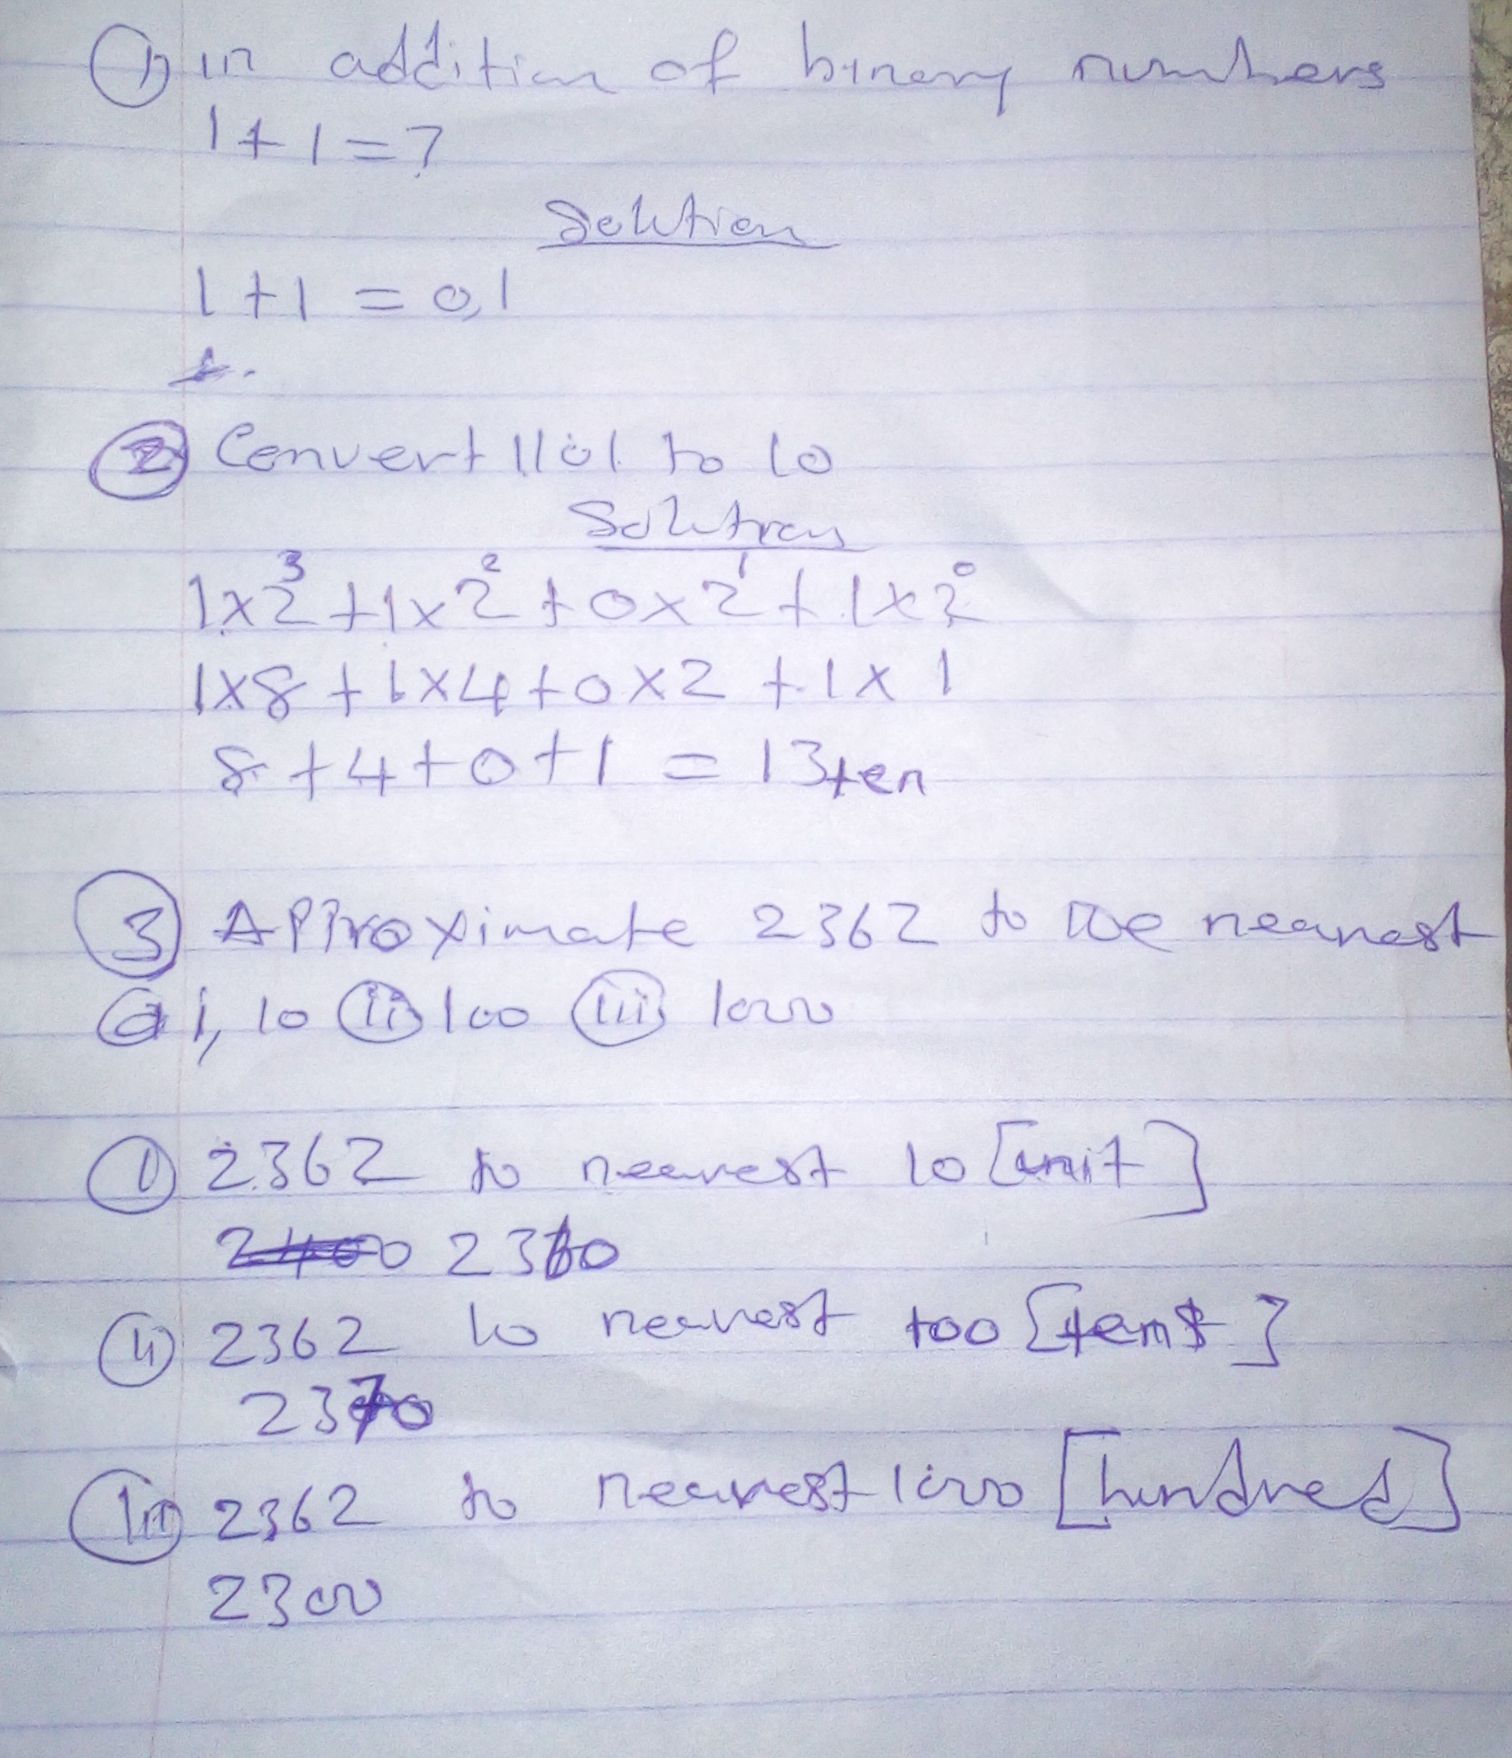 1) in addition of binary numbers
1 + 1 = ?
Solution
1 + 1 = 0,1
2 Convert 1101 to 10
Solution
1x2³ + 1x2² + 0x2¹ + 1x2⁰
1x8 + 1x4 + 0x2 + 1x1
8 + 4 + 0 + 1 = 13ten
3 Approximate 2362 to the nearest
a i, 10 ii 100 iii 1000
i 2362 to nearest 10 [unit]
2400 2360
ii 2362 to nearest 100 [tens]
2370
iii 2362 to nearest 1000 [hundred]
2300